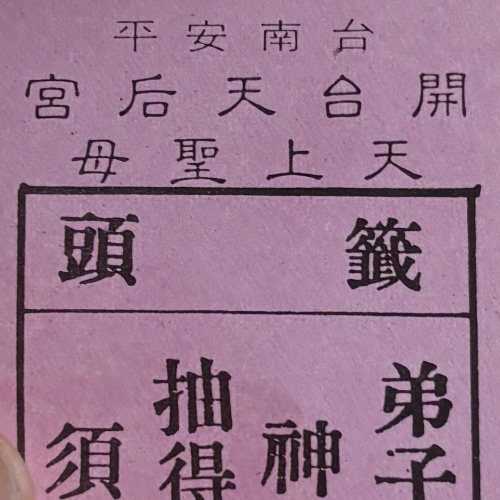 台南安平
開台天后宮
天上聖母
籤頭
弟子
神
抽得
須